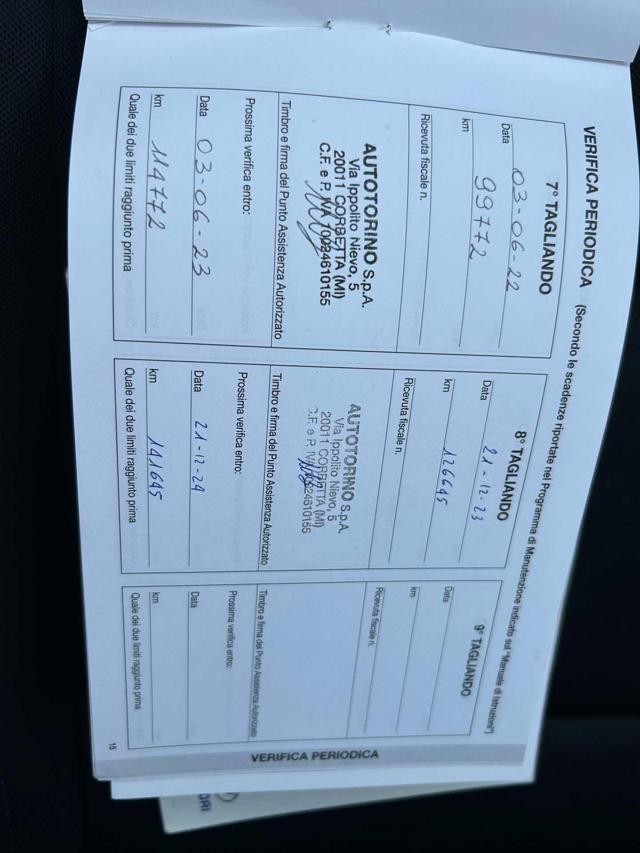 VERIFICA PERIODICA (Secondo le scadenze riportate nel Programma di Manutenzione indicato sul "Manuale di Istruzioni")
7° TAGLIANDO
Data 03-06-22
km 99772
Ricevuta fiscale n.
AUTOTORINO S.p.A.
Via Ippolito Nievo, 5
20011 CORBETTA (MI)
C.F. e P. IVA 10024610155
Timbro e firma del Punto Assistenza Autorizzato
Prossima verifica entro:
Data 03-06-23
km 114772
Quale dei due limiti raggiunto prima
8° TAGLIANDO
Data 21-12-23
km 126645
Ricevuta fiscale n.
AUTOTORINO S.p.A.
Via Ippolito Nievo, 5
20011 CORBETTA (MI)
C.F. e P. IVA 10024610155
Timbro e firma del Punto Assistenza Autorizzato
Prossima verifica entro:
Data 21-12-24
km 141645
Quale dei due limiti raggiunto prima
9° TAGLIANDO
Data
km
Ricevuta fiscale n.
Timbro e firma del Punto Assistenza Autorizzato
Prossima verifica entro:
Data
km
Quale dei due limiti raggiunto prima
VERIFICA PERIODICA
15